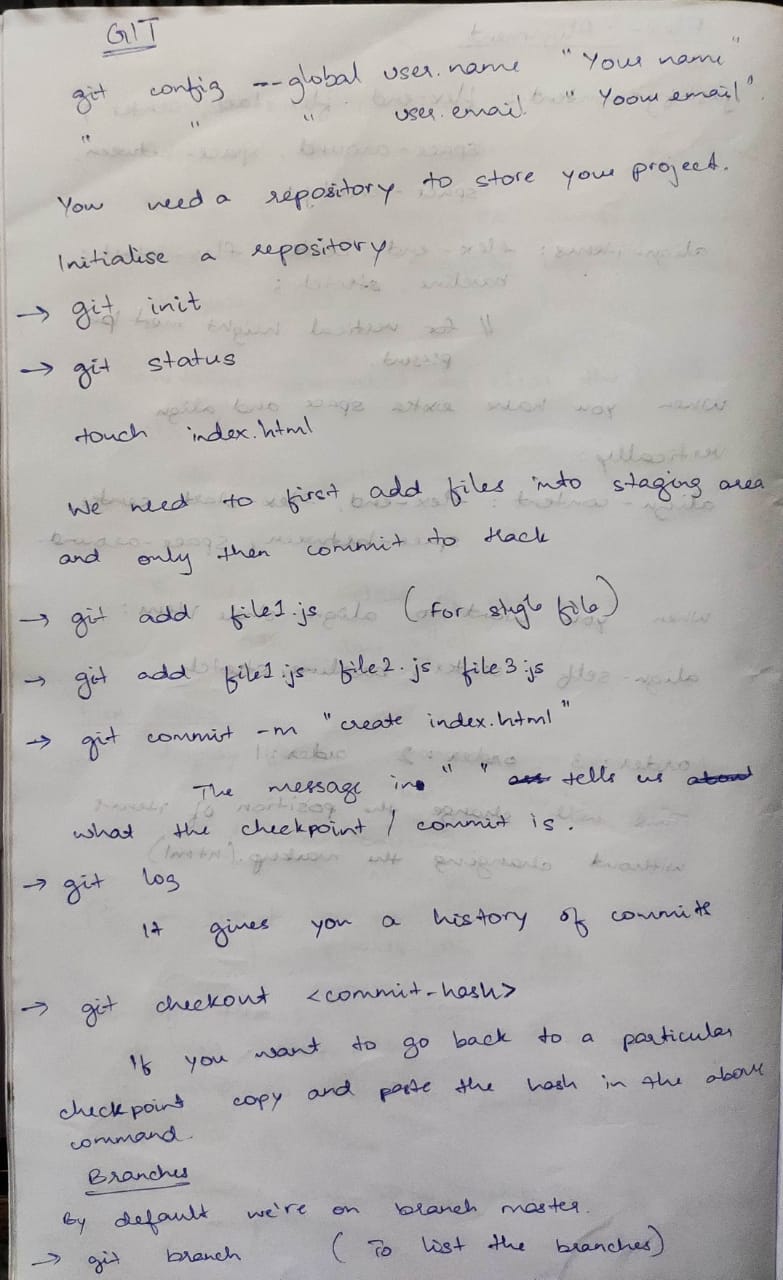 GIT
git config --global user.name "Your name"
" " " user.email "Your email".
You need a repository to store your project.
Initialise a repository
→ git init
→ git status
touch index.html
We need to first add files into staging area
and only then commit to track
→ git add file1.js (for single file)
→ git add file1.js file2.js file3.js
→ git commit -m "create index.html"
The message in " " tells us about
what the checkpoint / commit is.
→ git log
It gives you a history of commits
→ git checkout <commit-hash>
If you want to go back to a particular
checkpoint copy and paste the hash in the above
command.
Branches
By default we're on branch master.
→ git branch (To list the branches)